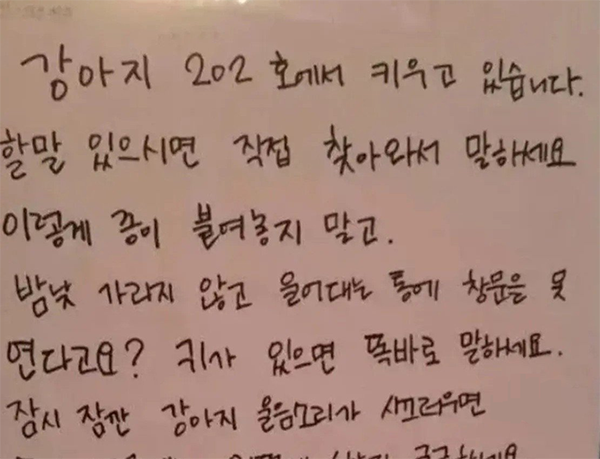 강아지 202 호에서 키우고 있습니다.
할말 있으시면 직접 찾아와서 말하세요
이렇게 종이 붙여놓지 말고.
밤낮 가리지 않고 울어대는 통에 창문은 못
연다고요? 귀가 있으면 똑바로 말하세요.
잠시 잠깐 강아지 울음소리가 시끄러우면